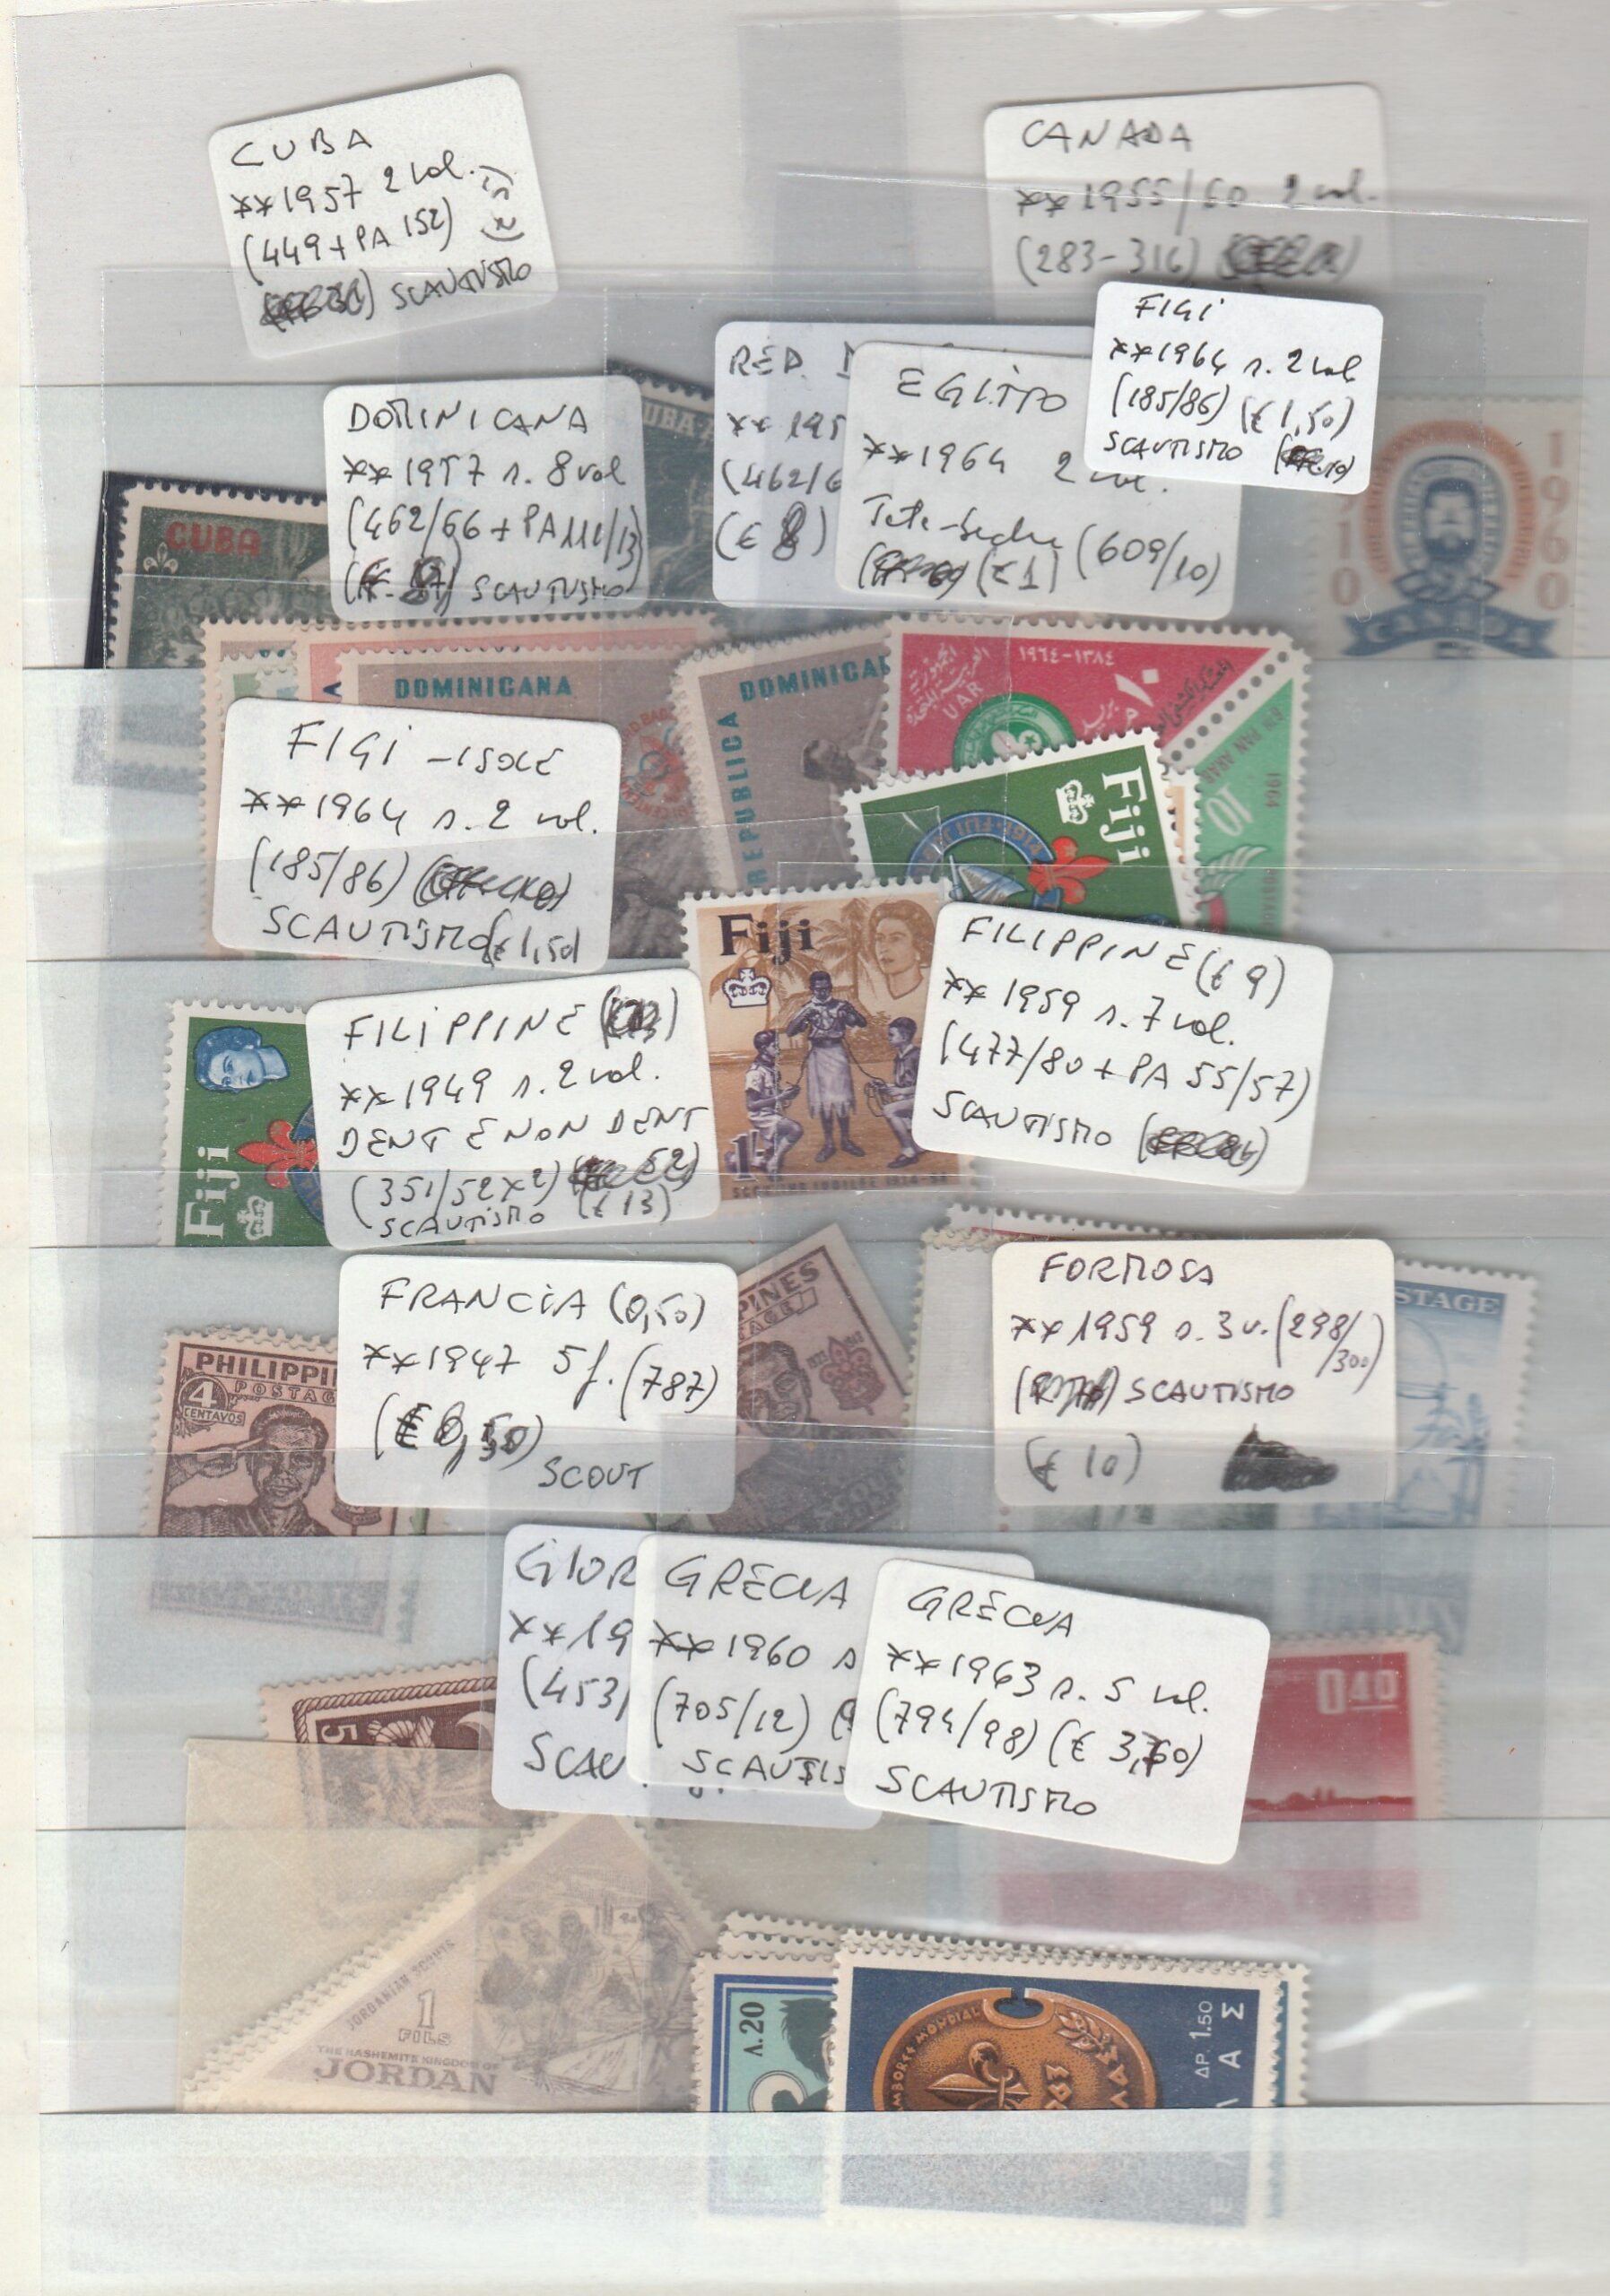 CUBA
**1957 2 vol.
(449+PA 152)
SCAUTISMO
CANADA
**1955/60 2 vol.
(283-316)
FIGI
**1964 s. 2 vol
(185/86) (€ 1,50)
SCAUTISMO
REP.
** 195
(462/6
(€ 8)
EGITTO
**1964 2 vol.
Tete-beche (609/10)
(€ 1)
DOMINICANA
**1957 s. 8 vol
(462/66 + PA 111/13)
SCAUTISMO
CUBA
CUBA
1960
CANADA
DOMINICANA
REPUBLICA DOMINICA
١٩٦٤-١٣٨٤
UAR
١٠
PAN ARAB
1964
10
FIGI - ISOLE
**1964 s. 2 vol.
(185/86)
SCAUTISMO (€ 1,50)
Fiji
Fiji
1/-
Fiji
FILIPPINE (€ 9)
** 1959 s. 7 vol.
(477/80 + PA 55/57)
SCAUTISMO
FILIPPINE
**1949 s. 2 vol.
DENT E NON DENT
(351/52x2)
SCAUTISMO (€ 13)
FRANCIA (0,50)
**1947 5 f. (787)
(€ 0,50)
SCOUT
FORMOSA
**1959 s. 3 v. (298/300)
SCAUTISMO
(€ 10)
PHILIPPI
POSTAG
4
CENTAVOS
PINES
TAGE
STAGE
GIOR
**19
(453/
SCAU
GRECIA
**1960 s
(705/12)
SCAUTIS
GRECIA
**1963 s. 5 vol.
(794/98) (€ 3,60)
SCAUTISMO
5
0.40
JORDANIAN SCOUTS
1
FILS
THE HASHEMITE KINGDOM OF
JORDAN
Λ.20
MONDIAL
ΔΡ. 1.50
ΕΛΛΑΣ